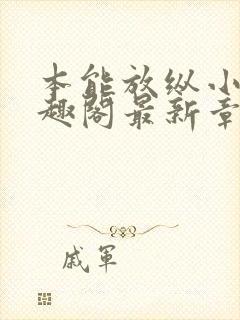 本能放纵小
趣阁最新章
戚軍